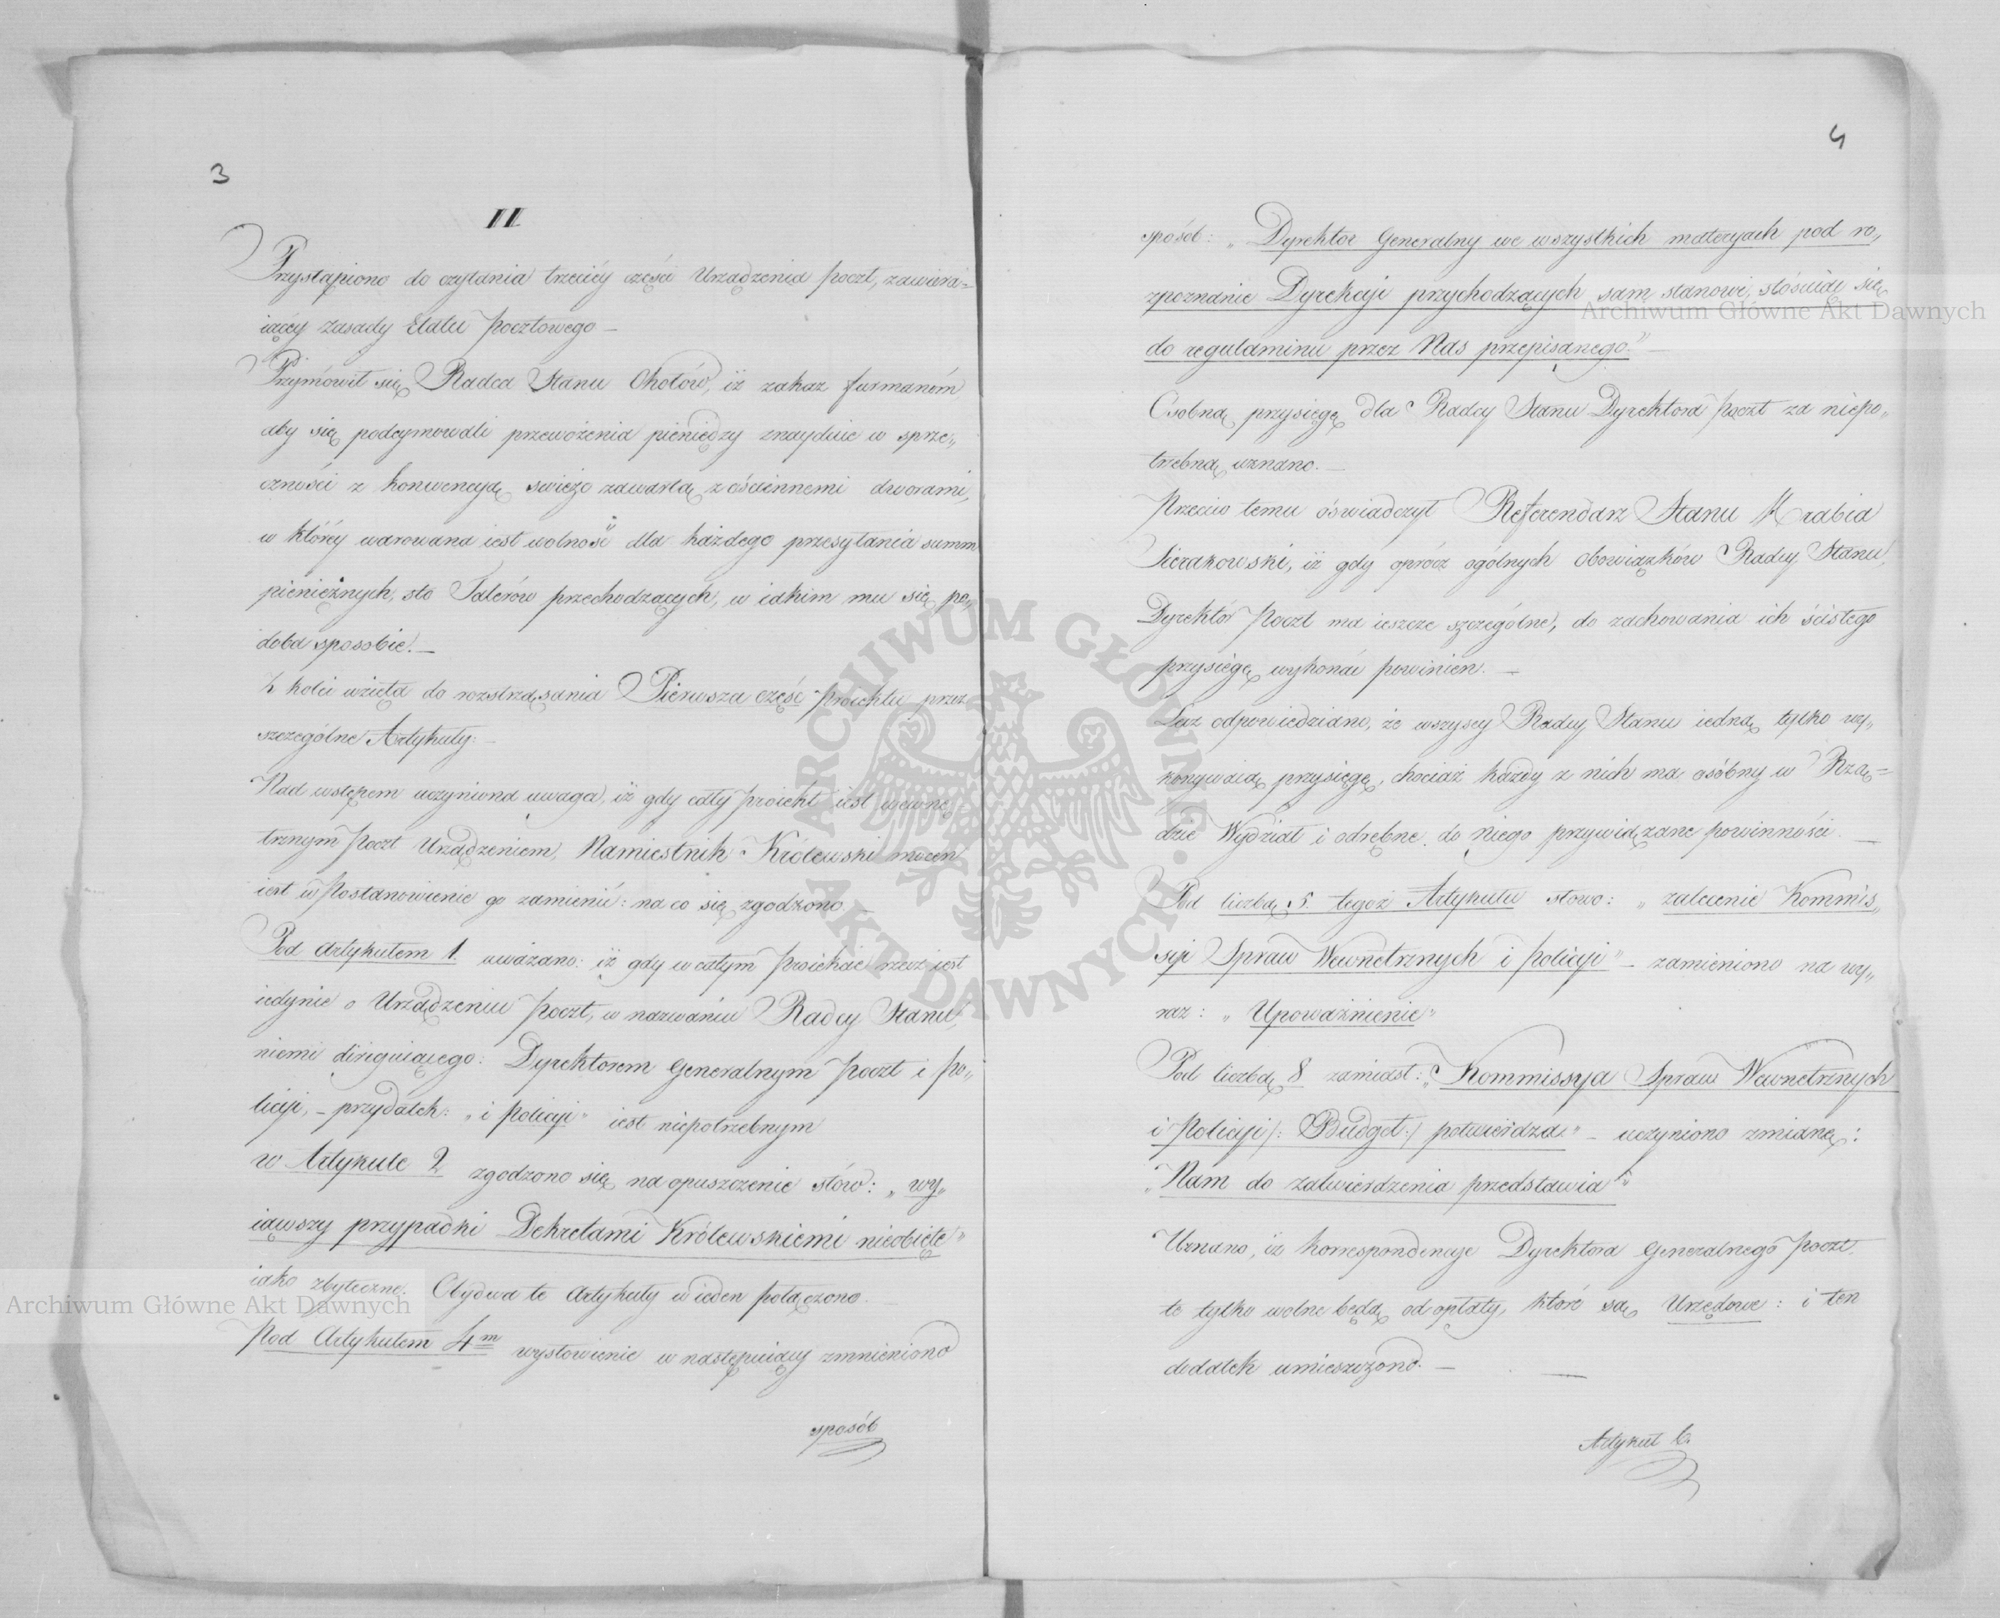 3
II
Przystąpiono do czytania trzeciéy części Urządzenia poczt, zawiera=
iącéy zasady Etatu Pocztowego —
Przymówił się Radca Stanu Okołów, iż zakaz furmanom
aby się podeymowali przewożenia pieniędzy znayduie w sprze„
czności z konwencyą świeżo zawartą z ościennemi dworami,
w któréy warowana iest wolność dla każdego przesyłania summ
pieniężnych, sto Talerów przechodzących, w iakim mu się po„
doba sposobie. —
z kolei wzięta do roztrząsania Pierwsza część Proiektu przez
szczególne Artykuły. —
Nad wstępem uczyniona uwaga, iż gdy cały proiekt iest wewnę„
trznym Poczt Urządzeniem, Namiestnik Królewski mocen
iest w Postanowienie go zamienić: na co się zgodzono. —
Pod Artykułem 1. uważano: iż gdy w całym Proiekcie rzecz iest
iedynie o Urządzeniu Poczt, w nazwaniu Radcy Stanu,
niemi diriguiącego: Dyrektorem Generalnym Poczt i Po„
licyi, — przydatek: „i Policyi" iest niepotrzebnym
w Artykule 2 zgodzono się na opuszczenie słów: „wy„
iąwszy przypadki Dekretami Królewskiemi nieobięte"
iako zbyteczne. Obydwa te Artykuły w ieden połączono. —
Pod Artykułem 4m wysłowienie w następuiący zmieniono
sposób
4
sposób: „Dyrektor Generalny we wszystkich materyach pod ro„
zpoznanie Dyrekcyi przychodzących sam stanowi, stósuiąc się
do regulaminu przez Nas przepisanego." —
Osobną przysięgę dla Radcy Stanu Dyrektora Poczt za niepo„
trzebną uznano. —
Przeciw temu oświadczył Referendarz Stanu Hrabia
Sierakowski, iż gdy oprócz ogólnych obowiązków Radcy Stanu,
Dyrektór Poczt ma ieszcze szczególne, do zachowania ich ścisłego
przysięgę wykonać powinien. —
Lecz odpowiedziano, że wszyscy Radcy Stanu iedną tylko wy„
konywaią przysięgę, chociaż każdy z nich ma osóbny w Rzą=
dzie Wydział i odrębne do niego przywiązane powinności. —
Pod liczbą 5. tegoż Artykułu słowo: „zalecenie Kommis„
syi Spraw Wewnętrznych i Policyi" — zamieniono na wy„
raz: „Upoważnienie"
Pod liczbą 8 zamiast: „Kommissya Spraw Wewnętrznych
i Policyi /: Budget :/ potwierdza" — uczyniono zmianę:
„Nam do zatwierdzenia przedstawia"
Uznano, iż korrespondencye Dyrektora Generalnego Poczt
te tylko wolne będą od opłaty, które są Urzędowe: i ten
dodatek umieszczono. —
Artykuł 6.
Archiwum Główne Akt Dawnych
Archiwum Główne Akt Dawnych
ARCHIWUM GŁÓWNE AKT DAWNYCH